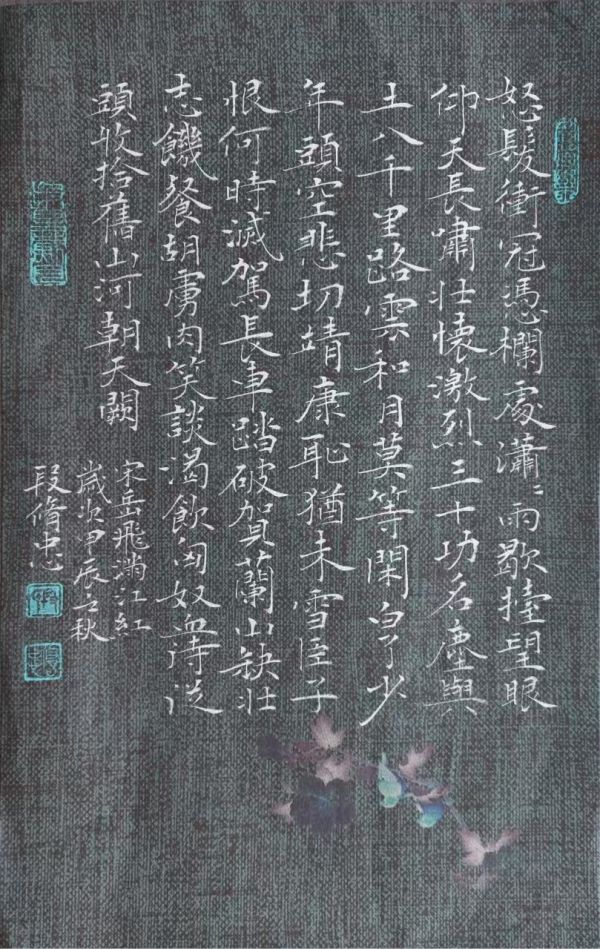 怒髮衝冠憑欄處瀟〻雨歇擡望眼
仰天長嘯壯懷激烈三十功名塵與
土八千里路雲和月莫等閑白了少
年頭空悲切靖康恥猶未雪臣子
恨何時滅駕長車踏破賀蘭山缺壯
志饑餐胡虜肉笑談渴飲匈奴血待從
頭收拾舊山河朝天闕
宋岳飛滿江紅
歲次甲辰之秋
段脩忠